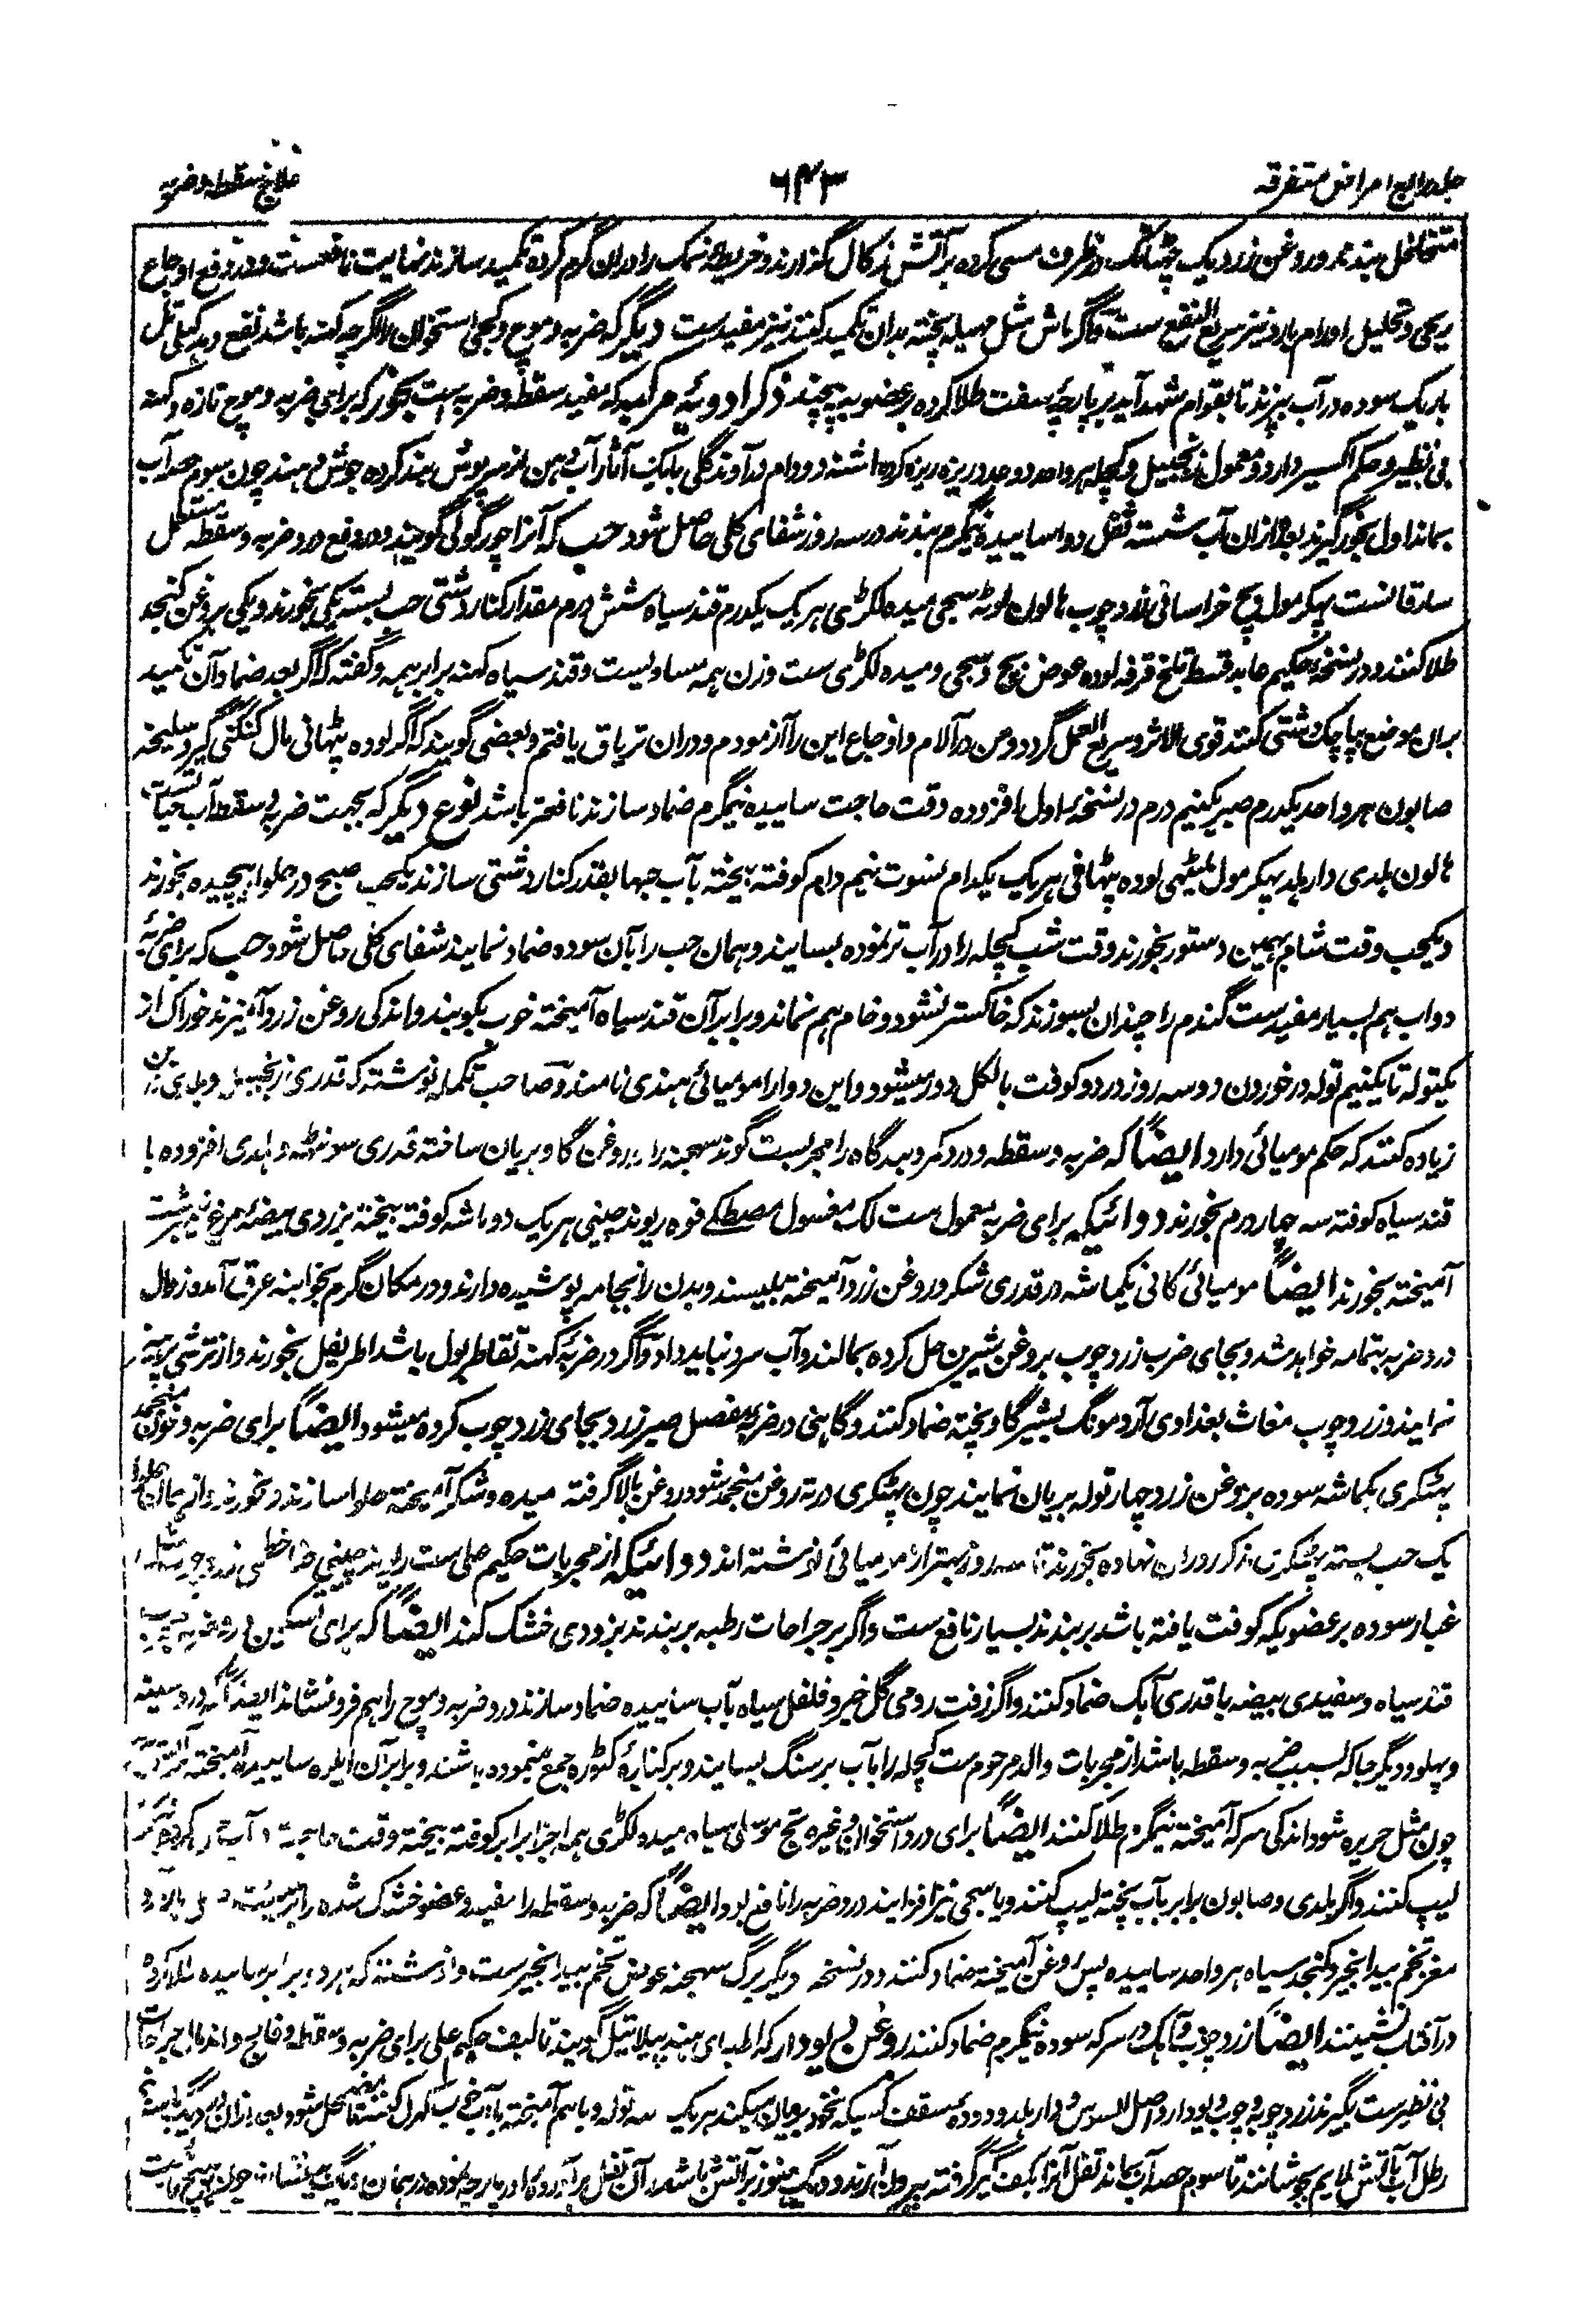 جلد رابع امراض متفرقه ۶۴۳ علاج سقطه و ضربه
متخلخل بندند و روغن زرد یک چهٹانک در ظرف مسی کرده بر آتش زکال گذارند و خریطه نمک را دران گرم کرده تکمید سازند نهایت نافعست و در دفع اوجاع
ریحی و تحلیل اورام بارده نیز سریع النفع ست و اگر ماش مثل مہیله پخته بدان تکمید کنند نیز مفیدست دیگر که ضربه و موچ و کجی استخوان را اگرچه کهنه باشد نفع دهد کیلی تل
باریک سوده در آب بپزند تا بقوام شهد آید بر پارچه سفت طلا کرده بر عضو به پیچند ذکر ادویه مرکبه که مفید سقطه و ضربه است بخور که برای ضربه و موچ تازه و کهنه
بی نظیر و حکم اکسیر دارد و معمول زنجبیل و کچله هر واحد دو عدد ریزه ریزه کرده اشنه دو دام در آوند گلی با یک آثار آب دهن از سرپوش بند کرده جوش دهند چون سوم حصه آب
بماند اول بخور گیرند بعد ازان آب شسته ثفل دوا ساییده نیمگرم بندند در سه روز شفای کلی حاصل شود حب که آنرا چور گولی گویند و در دفع درد ضربه و سقطه مستعمل
سارقانست پهکر مول وج خراسانی زرد چوب هالون لوٹه سجی میده لکڑی هر یک یکدرم قند سیاه شش درم مقدار کنار دشتی حب بسته یکی بخورند و یکی بروغن کنجد
طلا کنند و در نسخه حکیم عابد قسط تلخ قرفه لوده عوض وج و سجی و میده لکڑی ست و وزن همه مساویست و قند سیاه کهنه برابر همه و گفته که اگر بعد ضماد آن تکمید
بران موضع بپاچک دشتی کنند قوی الاثر و سریع العمل گردد و من در آلام و اوجاع این را آزمودم و دران تریاق یافتم و بعضی گویند که اگر لوده پٹهانی مال کنگنی گیرو سلیخه
صابون هر واحد یکدرم صبر یکنیم درم در نسخه اول افزوده وقت حاجت ساییده نیمگرم ضماد سازند نافعتر باشد نوع دیگر که بجهت ضربه و سقطه آب حیات ست
هالون هلدی دارهلد پهکر مول میٹهی لوده پٹهانی هر یک یکدام لسوت نیم دام کوفته بیخته بآب حبها بقدر کنار دشتی سازند یکحب صبح در حلوا پیچیده بخورند
و یکحب وقت شام بهمین دستور بخورند وقت شب کچله را در آب تر نموده بسایند و همان حب را بآن سوده ضماد نمایند شفای کلی حاصل شود حب که برای ضربه
دواب هم بسیار مفیدست گندم را چندان بسوزند که خاکستر نشود و خام هم نماند و برابر آن قند سیاه آمیخته خوب بکوبند و اندکی روغن زرد آمیزند خوراک از
یکتوله تا یکنیم توله در خوردن دو سه روز درد و کوفت بالکل دور میشود و این دوا را مومیائی هندی نامند و صاحب تکمله نوشته که قدری زنجبیل و هلدی
زیاده کنند که حکم مومیائی دارد ایضاً که ضربه و سقطه و درد کمر و بندگاه را مجربست گوند سهجنه را بروغن گاو بریان ساخته قدری سونٹه و هلدی افزوده با
قند سیاه کوفته سه چهار درم بخورند دوائیکه برای ضربه معمول ست لک مغسول مصطگے فوه ریوند چینی هر یک دو ماشه کوفته بیخته بزردی بیضۂ مرغ نیمبرشت
آمیخته بخورند ایضاً مومیائی کانی یکماشه در قدری شکر و روغن زرد آمیخته بلیسند و بدن را بجامه پوشیده دارند و در مکان گرم بخوابند عرق آمده زوال
درد ضربه بتمامه خواهد شد و بجای ضرب زرد چوب بروغن شیرین حل کرده بمالند و آب سرد نباید داد و اگر در ضربۂ کهنه تقاطر بول باشد اطریفل بخورند و از ترشی پرهیز
نمایند و زرد چوب مغاث بغدادی آرد مونگ بشیر گاو پخته ضماد کنند و گاهی در ضربه مفصل صبر زرد بجای زرد چوب کرده میشود ایضاً برای ضربه و خون منجمد
پهٹکری یکماشه سوده بروغن زرد چهار توله بریان نمایند چون پهٹکری در ته روغن منجمد شود روغن بالا گرفته میده و شکر آمیخته حلوا سازند و بخورند و از همان حلوا
یک حب بسته پهٹکری مذکور دران نهاده بخورند تا سه روز بهتر از مومیائی نوشته اند دوائیکه از مجربات حکیم علی ست ریوند چینی
غبار سوده بر عضویکه کوفت یافته باشد بر بندند بسیار نافع ست و اگر بر جراحات رطبه بر بندند بزودی خشک کند ایضاً که برای تسکین درد ضربه
قند سیاه و سفیدی بیضه با قدری آهک ضماد کنند و اگر زفت رومی گل خیرو فلفل سیاه بآب ساییده ضماد سازند درد ضربه و موچ را هم فرو نشاند ایضاً که درد سینه
و پهلو و دیگر جا که بسبب ضربه و سقطه باشد از مجربات والد مرحوم ست کچله را بآب بر سنگ بسایند و بر کنارۂ کٹوره جمع نموده باشند و برابر آن ایلوه ساییده آمیخته
چون مثل حریره شود اندکی سرکه آمیخته نیمگرم طلا کنند ایضاً برای درد استخوان وغیره سج موسلی سیاه میده لکڑی همه اجزا برابر کوفته بیخته وقت حاجت در آب
لیپ کنند و اگر هلدی و صابون برابر بآب پخته لیپ کنند و یا سجی نیز افزایند درد ضربه را نافع بود ایضاً که ضربه و سقطه را مفید و عضو خشک شده را
مغز تخم بیدانجیر و کنجد سیاه هر واحد ساییده پس روغن آمیخته ضماد کنند و در نسخه دیگر برگ سهجنه عوض تخم بیدانجیرست و نوشته که هر دو برابر ساییده طلا کرده
در آفتاب نشینند ایضاً زرد چوب و آهک در سرکه سوده نیمگرم ضماد کنند روغن دیودار که اطبای هند پیلا تیل گویند تالیف حکیم علی برای ضربه و سقطه و فالج و اندمال جراحات
بی نظیرست بگیرند زرد چوبه و چوب دیودار و اصل السوس و دارهلد و دوده سقف کسیکه نخود بریان میکند هر یک سه توله و باهم آمیخته بآب کهرل کنند تا مضمحل شود بعد ازان در دیگ
رطل آب بآتش ملایم بجوشانند تا سوم حصه آب بماند ثفل آنرا بکفگیر گرفته بیرون آرند و دیگ هنوز بر آتش باشد